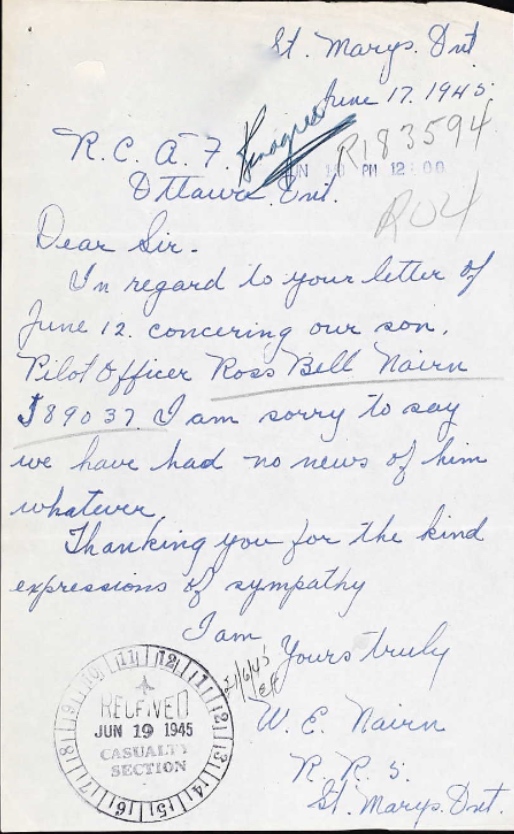 St. Marys. Ont
June 17. 1945
R183594
R. C. A. F.
PM 12:00
Ottawa. Ont.
R04
Dear Sir.
In regard to your letter of
June 12. concering our son.
Pilot Officer Ross Bell Nairn
J89037. I am sorry to say
we have had no news of him
whatever.
Thanking you for the kind
expressions of sympathy
I am
Yours truly
W. E. Nairn
R. R. 5.
St. Marys. Ont.
21/6/45
11 12 1 2 3 4 5 6 7 8 9 10
RECEIVED
JUN 19 1945
CASUALTY
SECTION